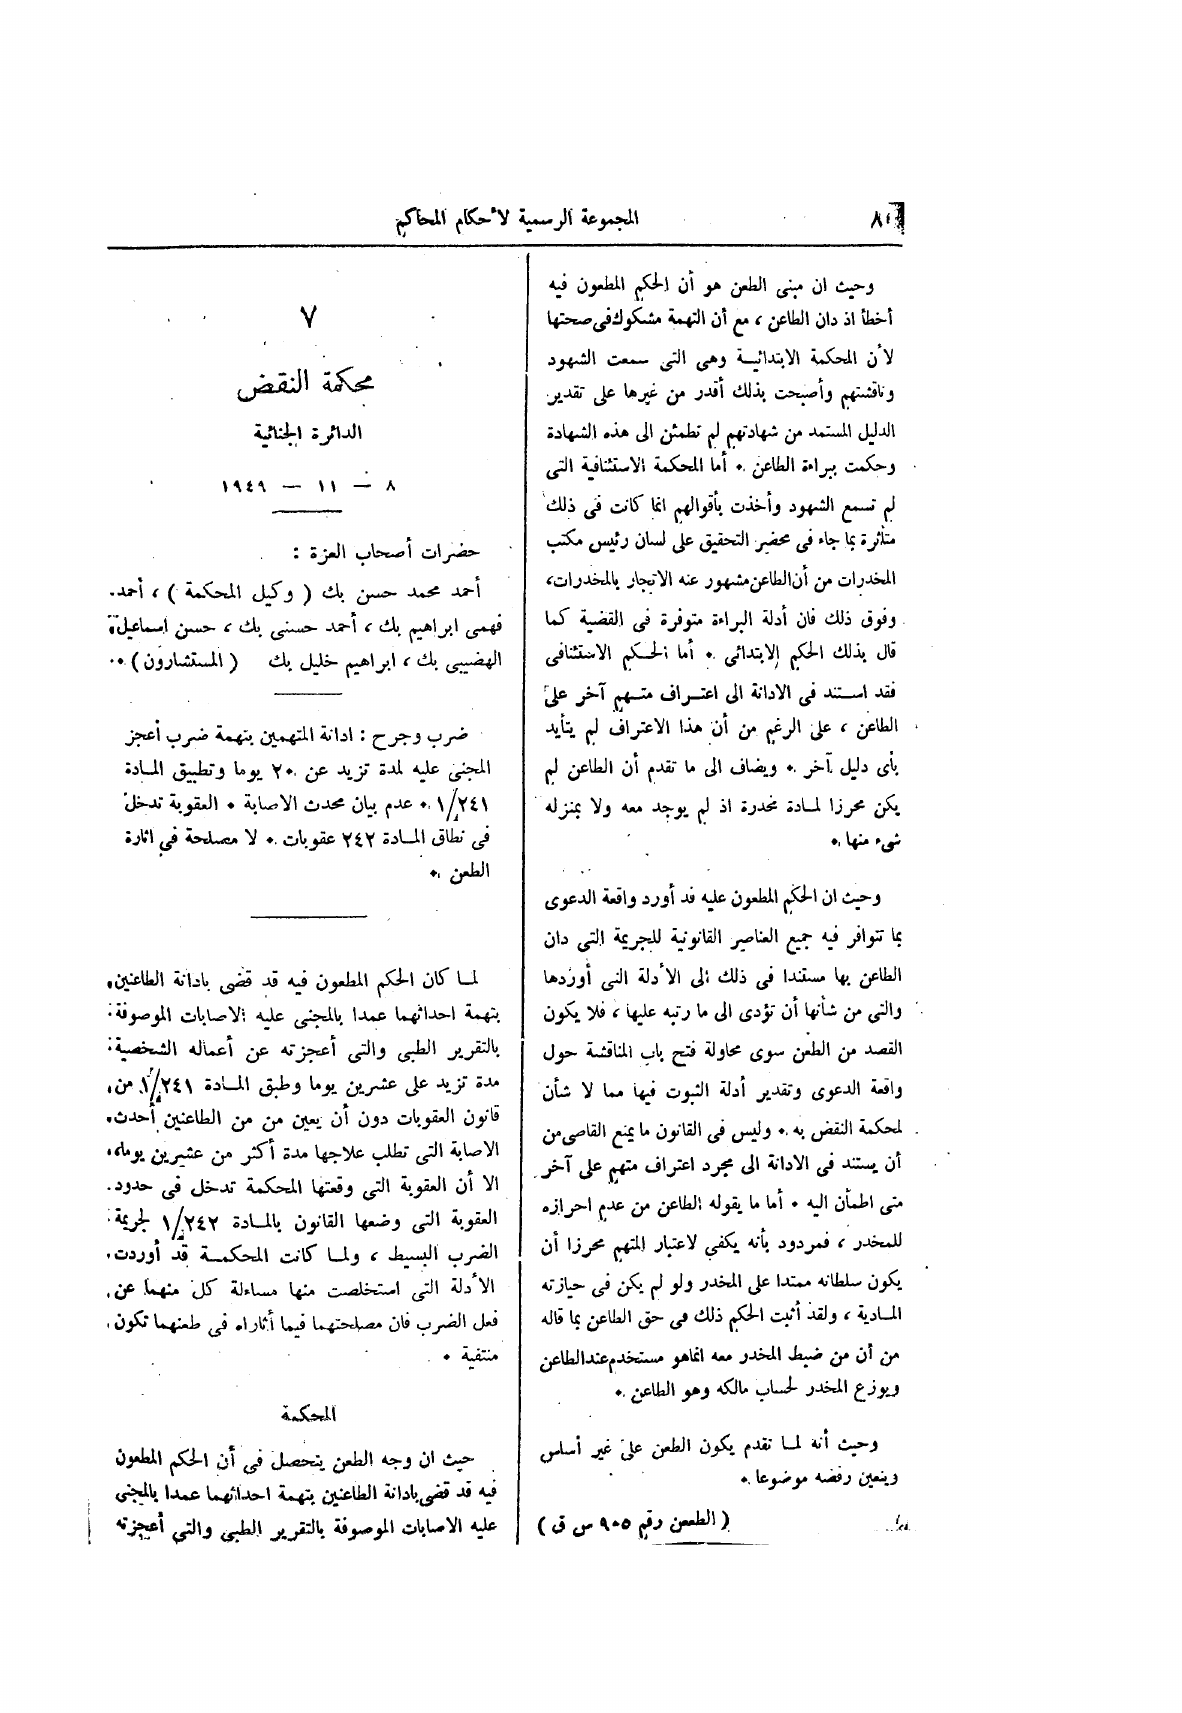 المجموعة الرسمية لأحكام المحاكم
وحيث ان مبنى الطعن هو أن الحكم المطعون فيه
أخطأ اذ دان الطاعن ، مع أن التهمة مشكوك فى صحتها
لأن المحكمة الابتدائية وهى التى سمعت الشهود
وناقشتهم وأصبحت بذلك أقدر من غيرها على تقدير
الدليل المستمد من شهادتهم لم تطمئن الى هذه الشهادة
وحكمت ببراءة الطاعن . أما المحكمة الاستئنافية التى
لم تسمع الشهود وأخذت بأقوالهم انما كانت فى ذلك
متأثرة بما جاء فى محضر التحقيق على لسان رئيس مكتب
المخدرات من أن الطاعن مشهور عنه الاتجار بالمخدرات،
وفوق ذلك فان أدلة البراءة متوفرة فى القضية كما
قال بذلك الحكم الابتدائى . أما الحكم الاستئنافى
فقد استند فى الادانة الى اعتراف متهم آخر على
الطاعن ، على الرغم من أن هذا الاعتراف لم يتأيد
بأى دليل آخر . ويضاف الى ما تقدم أن الطاعن لم
يكن محرزا لمادة مخدرة اذ لم يوجد معه ولا بمنزله
شىء منها .
وحيث ان الحكم المطعون عليه قد أورد واقعة الدعوى
بما تتوافر فيه جميع العناصر القانونية للجريمة التى دان
الطاعن بها مستندا فى ذلك الى الأدلة التى أوردها
والتى من شأنها أن تؤدى الى ما رتبه عليها ، فلا يكون
القصد من الطعن سوى محاولة فتح باب المناقشة حول
واقعة الدعوى وتقدير أدلة الثبوت فيها مما لا شأن
لمحكمة النقض به . وليس فى القانون ما يمنع القاضى من
أن يستند فى الادانة الى مجرد اعتراف متهم على آخر
متى اطمأن اليه . أما ما يقوله الطاعن من عدم احرازه
للمخدر ، فمردود بأنه يكفى لاعتبار المتهم محرزا أن
يكون سلطانه ممتدا على المخدر ولو لم يكن فى حيازته
المادية ، ولقد أثبت الحكم ذلك فى حق الطاعن بما قاله
من أن من ضبط المخدر معه انما هو مستخدم عند الطاعن
ويوزع المخدر لحساب مالكه وهو الطاعن .
وحيث أنه لما تقدم يكون الطعن على غير أساس
ويتعين رفضه موضوعا .
( الطعن رقم ٩٠٥ س ق )
٧
محكمة النقض
الدائرة الجنائية
٨ — ١١ — ١٩٤٩
حضرات أصحاب العزة :
أحمد محمد حسن بك ( وكيل المحكمة ) ، أحمد
فهمى ابراهيم بك ، أحمد حسنى بك ، حسن اسماعيل
الهضيبى بك ، ابراهيم خليل بك ( المستشارون ) .
ضرب وجرح : ادانة المتهمين بتهمة ضرب أعجز
المجنى عليه لمدة تزيد عن ٢٠ يوما وتطبيق المادة
١/٢٤١ . عدم بيان محدث الاصابة . العقوبة تدخل
فى نطاق المادة ٢٤٢ عقوبات . لا مصلحة فى اثارة
الطعن .
لما كان الحكم المطعون فيه قد قضى بادانة الطاعنين
بتهمة احداثهما عمدا بالمجنى عليه الاصابات الموصوفة
بالتقرير الطبى والتى أعجزته عن أعماله الشخصية
مدة تزيد على عشرين يوما وطبق المادة ١/٢٤١ من
قانون العقوبات دون أن يعين من من الطاعنين أحدث
الاصابة التى تطلب علاجها مدة أكثر من عشرين يوما،
الا أن العقوبة التى وقعتها المحكمة تدخل فى حدود
العقوبة التى وضعها القانون بالمادة ١/٢٤٢ لجريمة
الضرب البسيط ، ولما كانت المحكمة قد أوردت
الأدلة التى استخلصت منها مساءلة كل منهما عن
فعل الضرب فان مصلحتهما فيما أثاراه فى طعنهما تكون
منتفية .
المحكمة
حيث ان وجه الطعن يتحصل فى أن الحكم المطعون
فيه قد قضى بادانة الطاعنين بتهمة احداثهما عمدا بالمجنى
عليه الاصابات الموصوفة بالتقرير الطبى والتى أعجزته